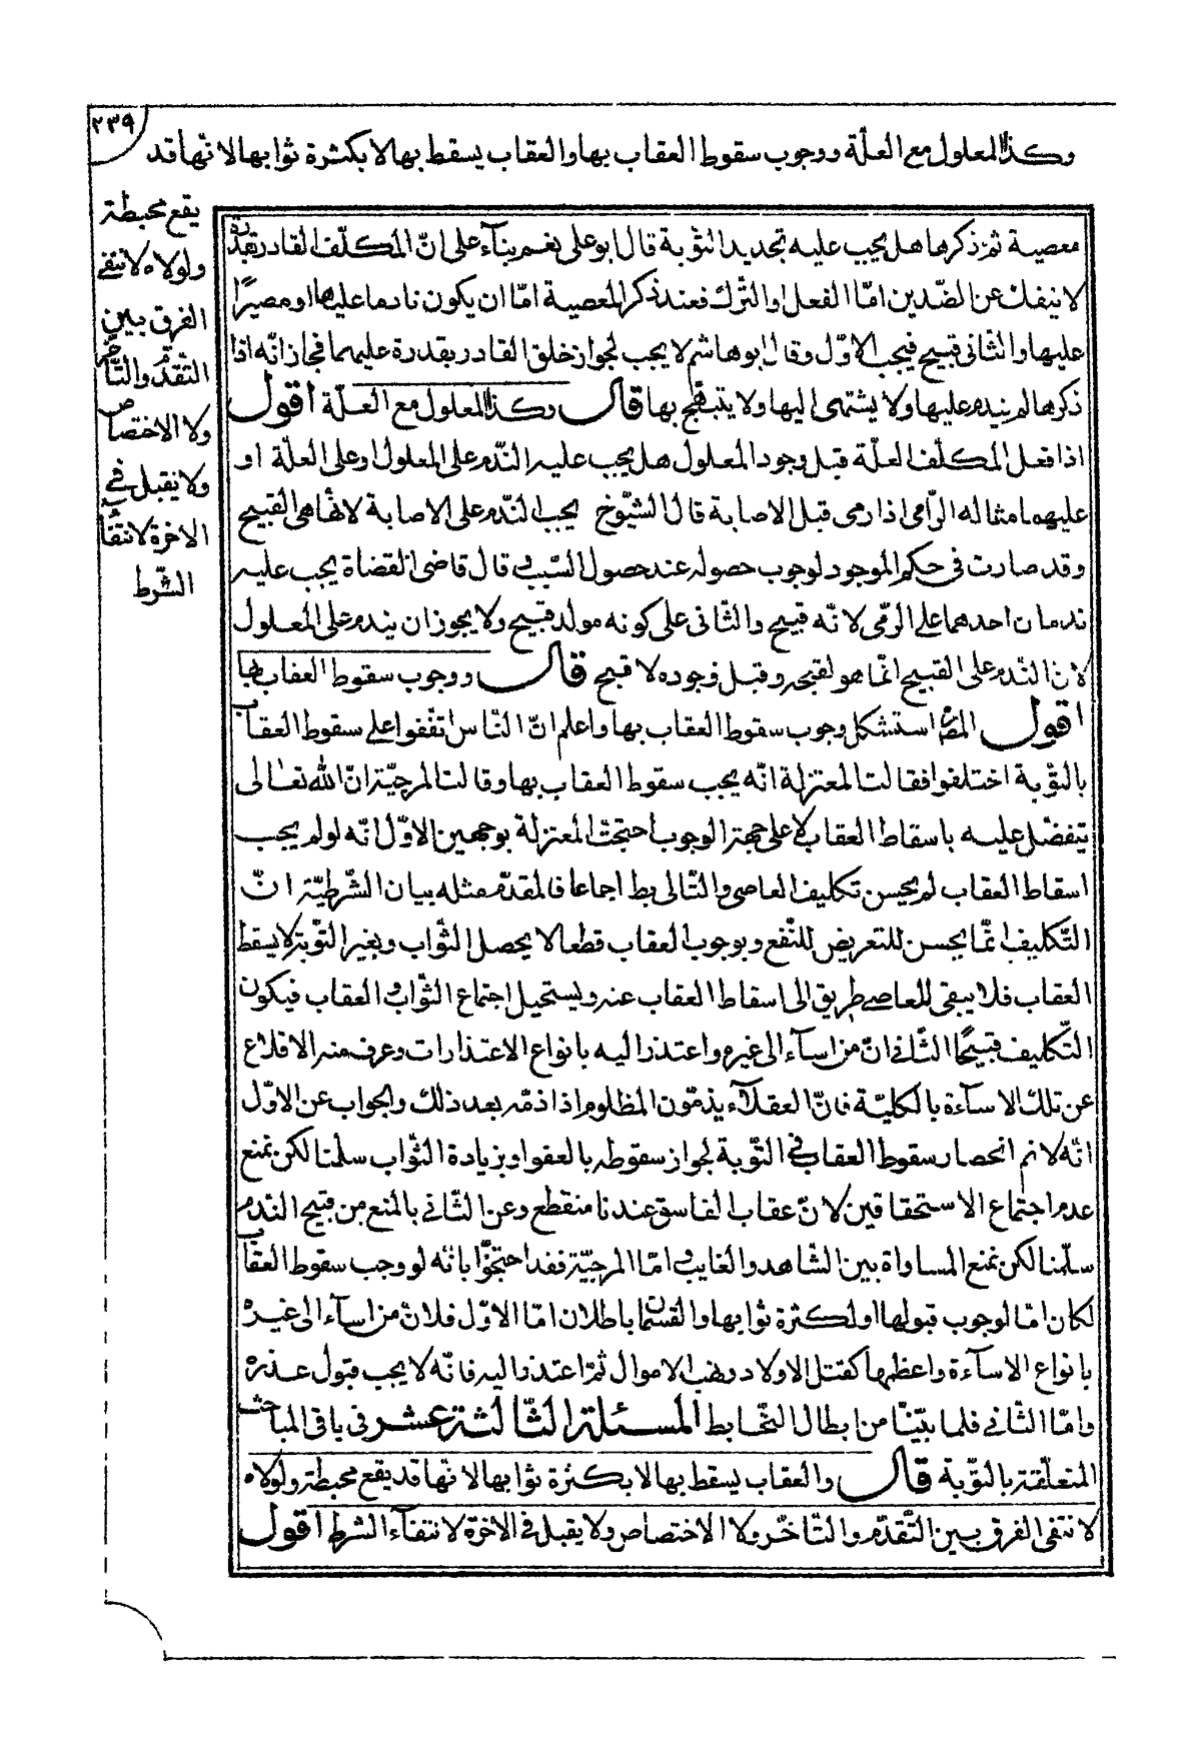 ٢٣٩
وكذا المعلول مع العلّة ووجوب سقوط العقاب بها والعقاب يسقط بها لا بكثرة ثوابها لانّها قد
يقع محبطة
ولولاه لانتفى
الفرق بين
التقدّم والتّاخّر
ولا الاختصاص
ولا يقبل في
الاخرة لانتفاء
الشّرط
معصية ثمّ ذكرها هل يجب عليه تجديد التّوبة قال ابو علي نعم بنآء على انّ المكلّف القادر بقدرة
لا ينفك عن الضّدين امّا الفعل او التّرك فعند ذكر المعصية امّا ان يكون نادما عليها او مصرًّا
عليها والثّاني قبيح فيجب الاوّل وقال ابو هاشم لا يجب لجواز خلق القادر بقدرة عليهما فجاز انّه اذا
ذكرها لم يندم عليها ولا يشتهى اليها ولا يتبهّج بها قال وكذا المعلول مع العلّة اقول
اذا فعل المكلّف العلّة قبل وجود المعلول هل يجب عليه النّدم على المعلول او على العلّة او
عليهما مثاله الرّامى اذا رمى قبل الاصابة قال الشّيوخ يجب النّدم على الاصابة لانّها هى القبيح
وقد صارت فى حكم الموجود لوجوب حصوله عند حصول السّبب قال قاضى القضاة يجب عليه
ندمان احدهما على الرّمى لانّه قبيح والثّانى على كونه مولد قبيح ولا يجوز ان يندم على المعلول
لانّ النّدم على القبيح انّما هو لقبحه وقبل وجوده لا قبح قال ووجوب سقوط العقاب بها
اقول المصّ استشكل وجوب سقوط العقاب بها واعلم انّ النّاس اتّفقوا على سقوط العقاب
بالتّوبة اختلفوا فقالت المعتزلة انّه يجب سقوط العقاب بها وقالت المرجئة انّ الله تعالى
يتفضّل عليه باسقاط العقاب لا على جهة الوجوب احتجّت المعتزلة بوجهين الاوّل انّه لو لم يجب
اسقاط العقاب لم يحسن تكليف العاصى والتّالى بط اجماعا فالمقدّم مثله بيان الشّرطيّة انّ
التّكليف انّما يحسن للتعريض للنّفع وبوجوب العقاب قطعا لا يحصل الثّواب وبغير التّوبة لا يسقط
العقاب فلا يبقى للعاصى طريق الى اسقاط العقاب عنه ويستحيل اجتماع الثّواب والعقاب فيكون
التّكليف قبيحًا الثّانى انّ من اسآء الى غيره واعتذر اليه بانواع الاعتذارات وعرف منه الاقلاع
عن تلك الاسآءة بالكليّة فانّ العقلآء يذمّون المظلوم اذا ذمّه بعد ذلك والجواب عن الاوّل
انّه لا نم انحصار سقوط العقاب في التّوبة لجواز سقوطه بالعفو او بزيادة الثّواب سلّمنا لكن نمنع
عدم اجتماع الاستحقاقين لانّ عقاب الفاسق عندنا منقطع وعن الثّاني بالمنع من قبح النّدم
سلّمنا لكن نمنع المساواة بين الشّاهد والغايب امّا المرجئة فقد احتجّوا بانّه لو وجب سقوط العقاب
لكان امّا لوجوب قبولها او لكثرة ثوابها والقسمان باطلان امّا الاوّل فلانّ من اسآء الى غيره
بانواع الاسآءة واعظمها كقتل الاولاد ونهب الاموال ثمّ اعتذر اليه فانّه لا يجب قبول عذره
وامّا الثّاني فلما بيّنّا من ابطال التّحابط المسئلة الثّالثة عشر فى باقى المباحث
المتعلّقة بالتّوبة قال والعقاب يسقط بها لا بكثرة ثوابها لانّها قد يقع محبطة ولولاه
لانتفى الفرق بين التّقدّم والتّاخّر ولا الاختصاص ولا يقبل فى الاخرة لانتفآء الشرط اقول